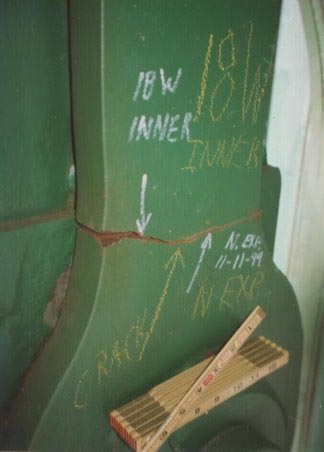 18W
INNER
18W
INNER
N. EXP.
11-11-99
N EXP
CRACK
8 9 10 11 12